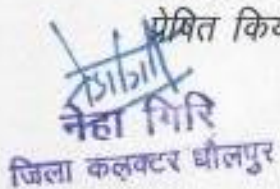 प्रेषित किय
नेहा गिरि
जिला कलक्टर धौलपुर